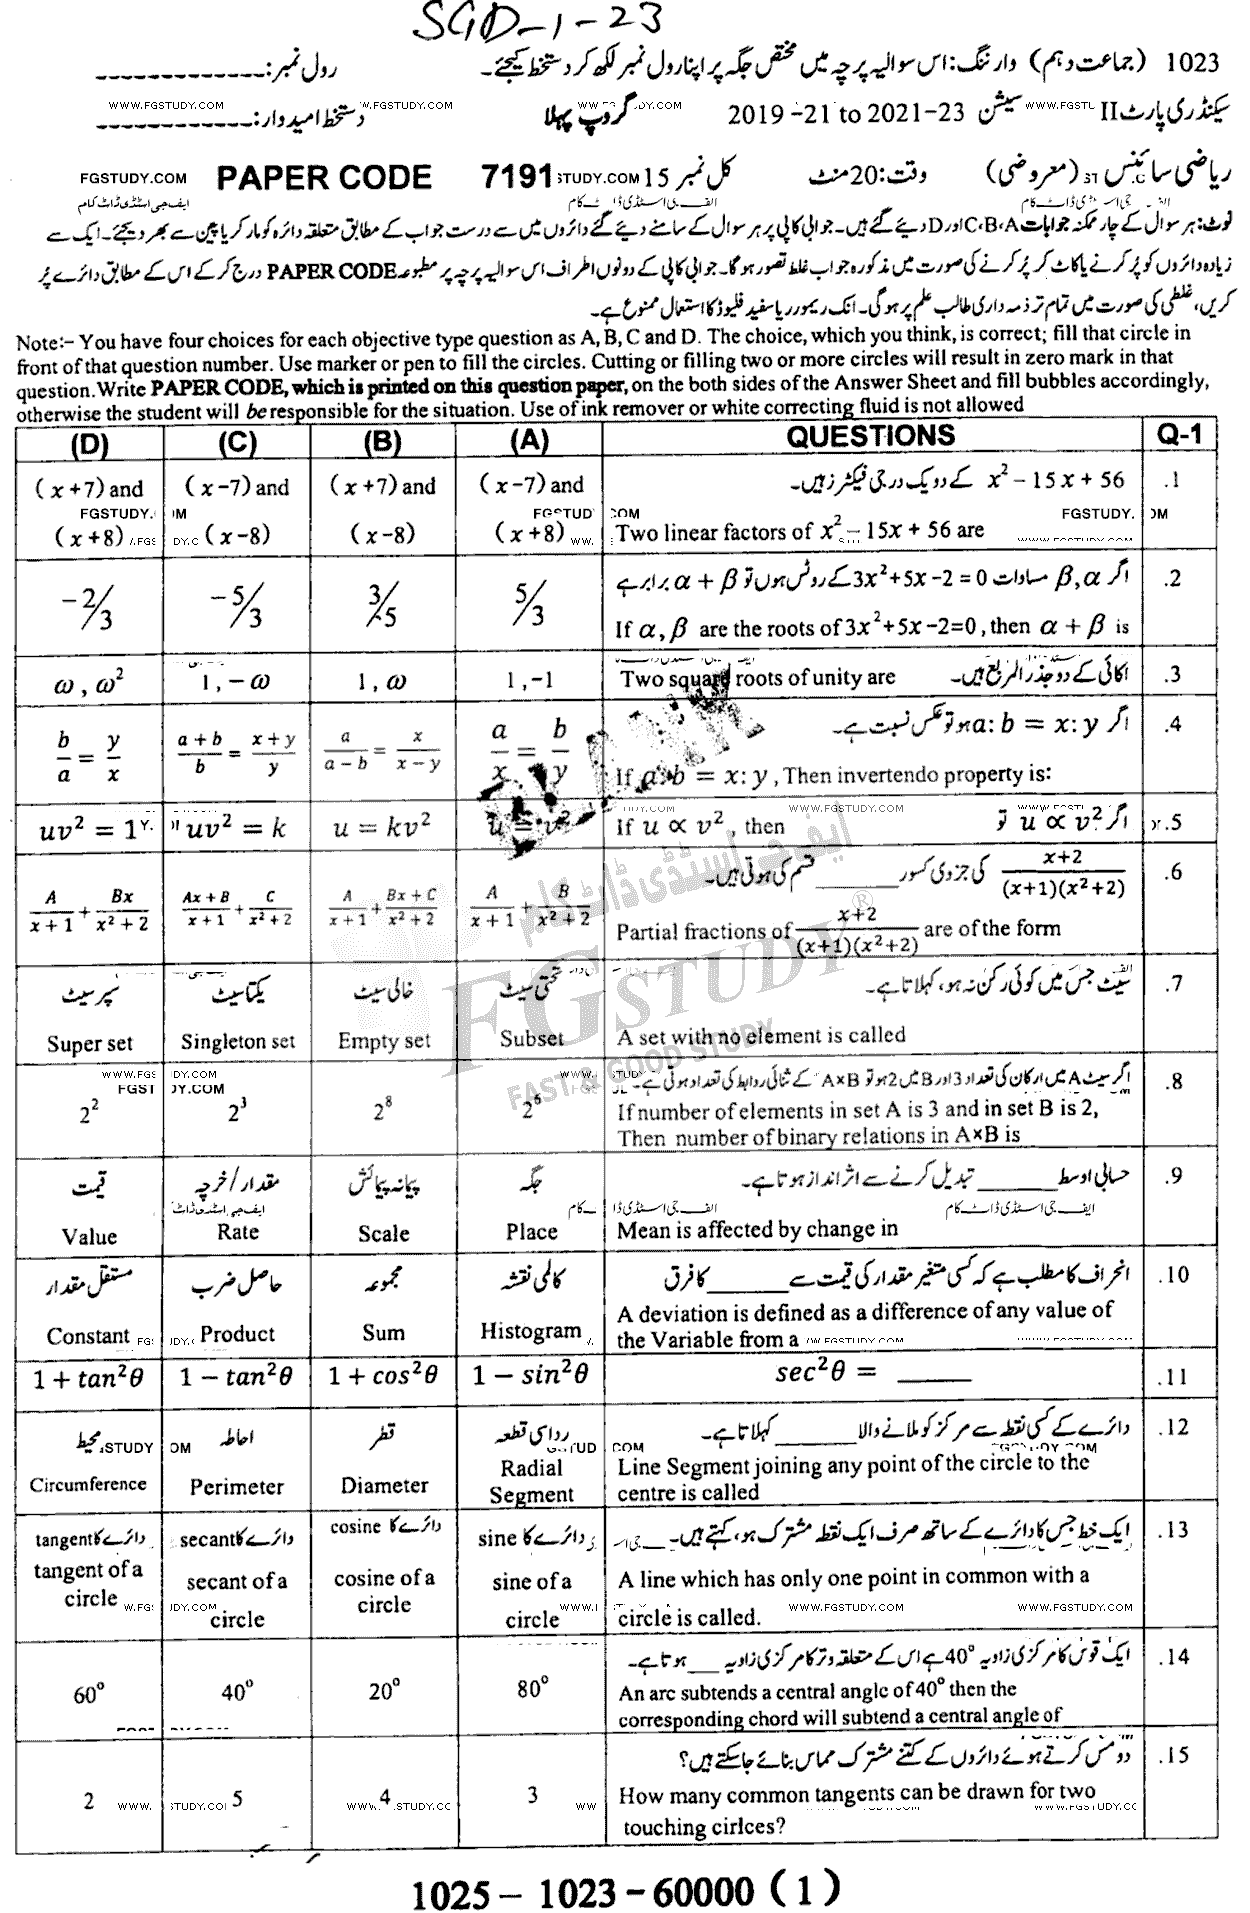 SGD-1-23
1023 (جماعت دہم) وارننگ: اس سوالیہ پرچہ میں مختص جگہ پر اپنا رول نمبر لکھ کر دستخط کیجئے۔ رول نمبر: -------------
WWW.FGSTUDY.COM
سیکنڈری پارٹ II سیشن 2019 -21 to 2021-23 گروپ پہلا دستخط امیدوار: -------------
ریاضی سائنس (معروضی) وقت: 20 منٹ کل نمبر 15 PAPER CODE 7191 FGSTUDY.COM
ایف جی اسٹڈی ڈاٹ کام
نوٹ: ہر سوال کے چار ممکنہ جوابات A،B،C اور D دیئے گئے ہیں۔ جوابی کاپی پر ہر سوال کے سامنے دیئے گئے دائروں میں سے درست جواب کے مطابق متعلقہ دائرہ کو مارکر یا پین سے بھر دیجئے۔ ایک سے
زیادہ دائروں کو پُر کرنے یا کاٹ کر پُر کرنے کی صورت میں مذکورہ جواب غلط تصور ہوگا۔ جوابی کاپی کے دونوں اطراف اس سوالیہ پرچہ پر مطبوعہ PAPER CODE درج کرکے اس کے مطابق دائرے پُر
کریں، غلطی کی صورت میں تمام تر ذمہ داری طالب علم پر ہوگی۔ انک ریمور یا سفید فلیوڈ کا استعمال ممنوع ہے۔
Note:- You have four choices for each objective type question as A, B, C and D. The choice, which you think, is correct; fill that circle in
front of that question number. Use marker or pen to fill the circles. Cutting or filling two or more circles will result in zero mark in that
question. Write PAPER CODE, which is printed on this question paper, on the both sides of the Answer Sheet and fill bubbles accordingly,
otherwise the student will be responsible for the situation. Use of ink remover or white correcting fluid is not allowed
(D) (C) (B) (A) QUESTIONS Q-1
x² − 15x + 56 کے دو یک درجی فیکٹرز ہیں۔ .1
Two linear factors of x² − 15x + 56 are
(x+7) and (x+8) (x−7) and (x−8) (x+7) and (x−8) (x−7) and (x+8)
اگر α, β مساوات 3x²+5x−2 = 0 کے روٹس ہوں تو α + β برابر ہے .2
If α, β are the roots of 3x²+5x−2=0, then α + β is
−2/3 −5/3 3/−5 5/3
اکائی کے دو جذر المربع ہیں۔ Two square roots of unity are .3
ω, ω² 1, −ω 1, ω 1, −1
اگر a: b = x: y ہو تو عکس نسبت ہے۔ .4
If a: b = x: y, Then invertendo property is:
b/a = y/x (a+b)/b = (x+y)/y a/(a−b) = x/(x−y) a/x = b/y
اگر u ∝ v² تو If u ∝ v², then .5
uv² = 1 uv² = k u = kv² u = v²
(x+2)/((x+1)(x²+2)) کی جزوی کسور ______ قسم کی ہوتی ہیں۔ .6
Partial fractions of (x+2)/((x+1)(x²+2)) are of the form
A/(x+1) + Bx/(x²+2) (Ax+B)/(x+1) + C/(x²+2) A/(x+1) + (Bx+C)/(x²+2) A/(x+1) + B/(x²+2)
سیٹ جس میں کوئی رکن نہ ہو، کہلاتا ہے۔ .7
A set with no element is called
سپر سیٹ یکتا سیٹ خالی سیٹ تحتی سیٹ
Super set Singleton set Empty set Subset
اگر سیٹ A میں ارکان کی تعداد 3 اور B میں 2 ہو تو A×B کے ثنائی روابط کی تعداد ہوتی ہے۔ .8
If number of elements in set A is 3 and in set B is 2,
Then number of binary relations in A×B is
2² 2³ 2⁸ 2⁶
حسابی اوسط ______ تبدیل کرنے سے اثر انداز ہوتا ہے۔ .9
Mean is affected by change in
قیمت مقدار/خرچہ پیمانہ پیمائش جگہ
Value Rate Scale Place
انحراف کا مطلب ہے کہ کسی متغیر مقدار کی قیمت سے ______ کا فرق .10
A deviation is defined as a difference of any value of
the Variable from a
مستقل مقدار حاصل ضرب مجموعہ کالمی نقشہ
Constant Product Sum Histogram
sec²θ = _____ .11
1 + tan²θ 1 − tan²θ 1 + cos²θ 1 − sin²θ
دائرے کے کسی نقطہ سے مرکز کو ملانے والا ______ کہلاتا ہے۔ .12
Line Segment joining any point of the circle to the
centre is called
محیط احاطہ قطر رداسی قطعہ
Circumference Perimeter Diameter Radial Segment
ایک خط جس کا دائرے کے ساتھ صرف ایک نقطہ مشترک ہو، کہتے ہیں۔ .13
A line which has only one point in common with a
circle is called.
دائرے کا tangent دائرے کا secant دائرے کا cosine دائرے کا sine
tangent of a circle secant of a circle cosine of a circle sine of a circle
ایک قوس کا مرکزی زاویہ 40° ہے اس کے متعلقہ وتر کا مرکزی زاویہ ___ ہوتا ہے۔ .14
An arc subtends a central angle of 40° then the
corresponding chord will subtend a central angle of
60° 40° 20° 80°
دو مس کرتے ہوئے دائروں کے کتنے مشترک مماس بنائے جا سکتے ہیں؟ .15
How many common tangents can be drawn for two
touching cirlces?
2 5 4 3
ایف جی اسٹڈی ڈاٹ کام
FGSTUDY
FAST & GOOD STUDY
1025 – 1023 – 60000 (1)